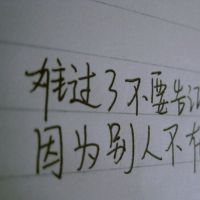 难过了不要告
因为别人不